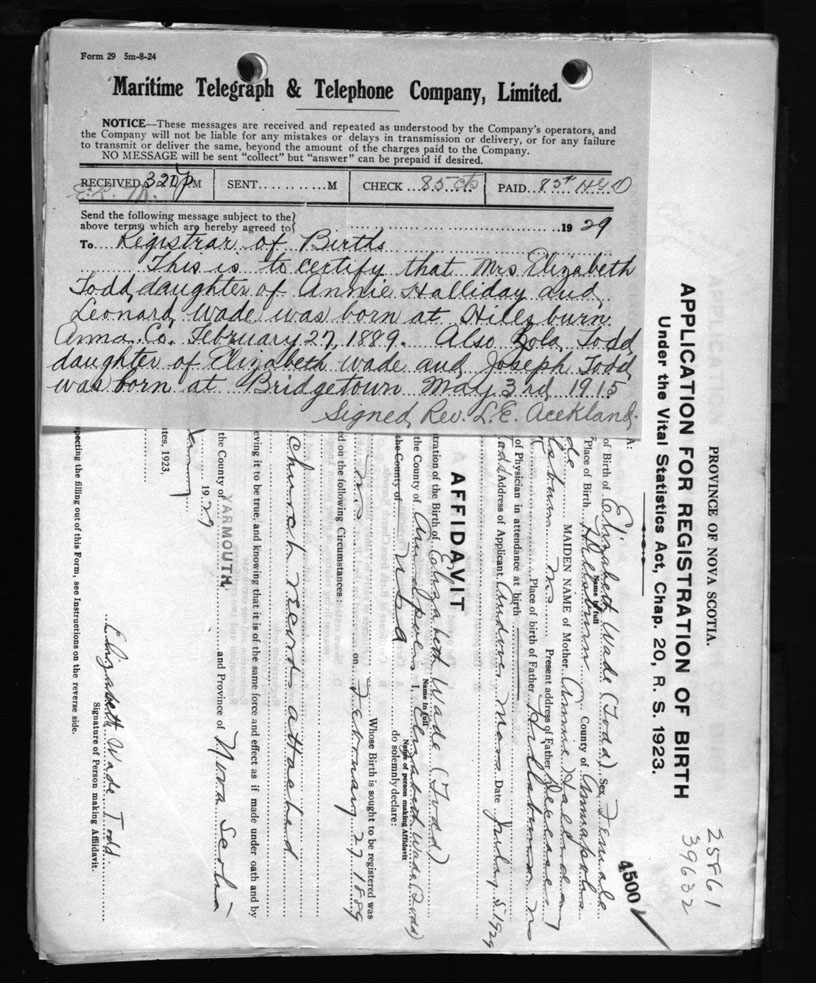 Form 29 5m-8-24
Maritime Telegraph & Telephone Company, Limited.
NOTICE—These messages are received and repeated as understood by the Company's operators, and
the Company will not be liable for any mistakes or delays in transmission or delivery, or for any failure
to transmit or deliver the same, beyond the amount of the charges paid to the Company.
NO MESSAGE will be sent "collect" but "answer" can be prepaid if desired.
RECEIVED 320 p M SENT...........M CHECK ...85 cts PAID...85
Send the following message subject to the
above terms which are hereby agreed to 1929
To Registrar of Births
This is to certify that Mrs Elizabeth
Todd, daughter of Annie Halliday and
Leonard Wade was born at Hillsburn
Anna. Co. February 27, 1889. Also Zola Todd
daughter of Elizabeth Wade and Joseph Todd
was born at Bridgetown May 3rd 1915
Signed Rev. L. E. Ackland.
PROVINCE OF NOVA SCOTIA.
APPLICATION FOR REGISTRATION OF BIRTH
Under the Vital Statistics Act, Chap. 20, R. S. 1923.
25961
39632
4500
of Birth of Elizabeth Wade (Todd) Sex Female
Name in full
Place of Birth Hillsburn County of Annapolis
MAIDEN NAME of Mother Annie
Present address of Father Deceased
Place of birth of Father Hillsburn
of Physician in attendance at birth
Address of Applicant Andover, Mass. Date July 5 1929
AFFIDAVIT
tration of the Birth of Elizabeth Wade (Todd)
Name in full
the County of Annapolis I, Elizabeth Wade (Todd)
Name of person making Affidavit
the County of USA do solemnly declare:
Whose Birth is sought to be registered was
on February 27 1889
d on the following Circumstances:
church records attached
eving it to be true, and knowing that it is of the same force and effect as if made under oath and by
the County of YARMOUTH and Province of Nova Scotia
1929
utes, 1923,
Elizabeth Wade Todd
Signature of Person making Affidavit.
pecting the filling out of this Form, see Instructions on the reverse side.